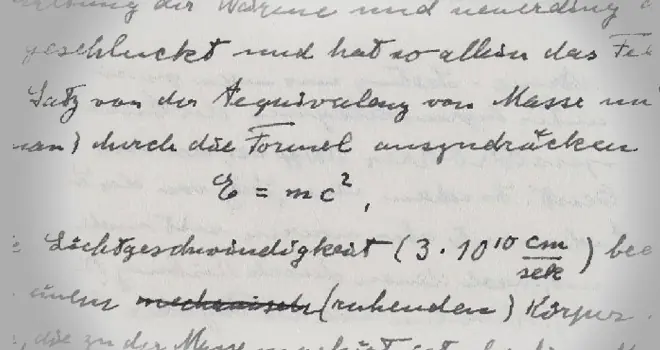 der Wärme und neuerding
geschluckt und hat so allein das Fel
Satz von der Aequivalenz von Masse un
man) durch die Formel auszudrücken
E = mc²,
Lichtgeschwindigkeit (3 . 10¹⁰ cm/sek) bee
einem mechanisch (ruhenden) Körper
, die zu der Masse